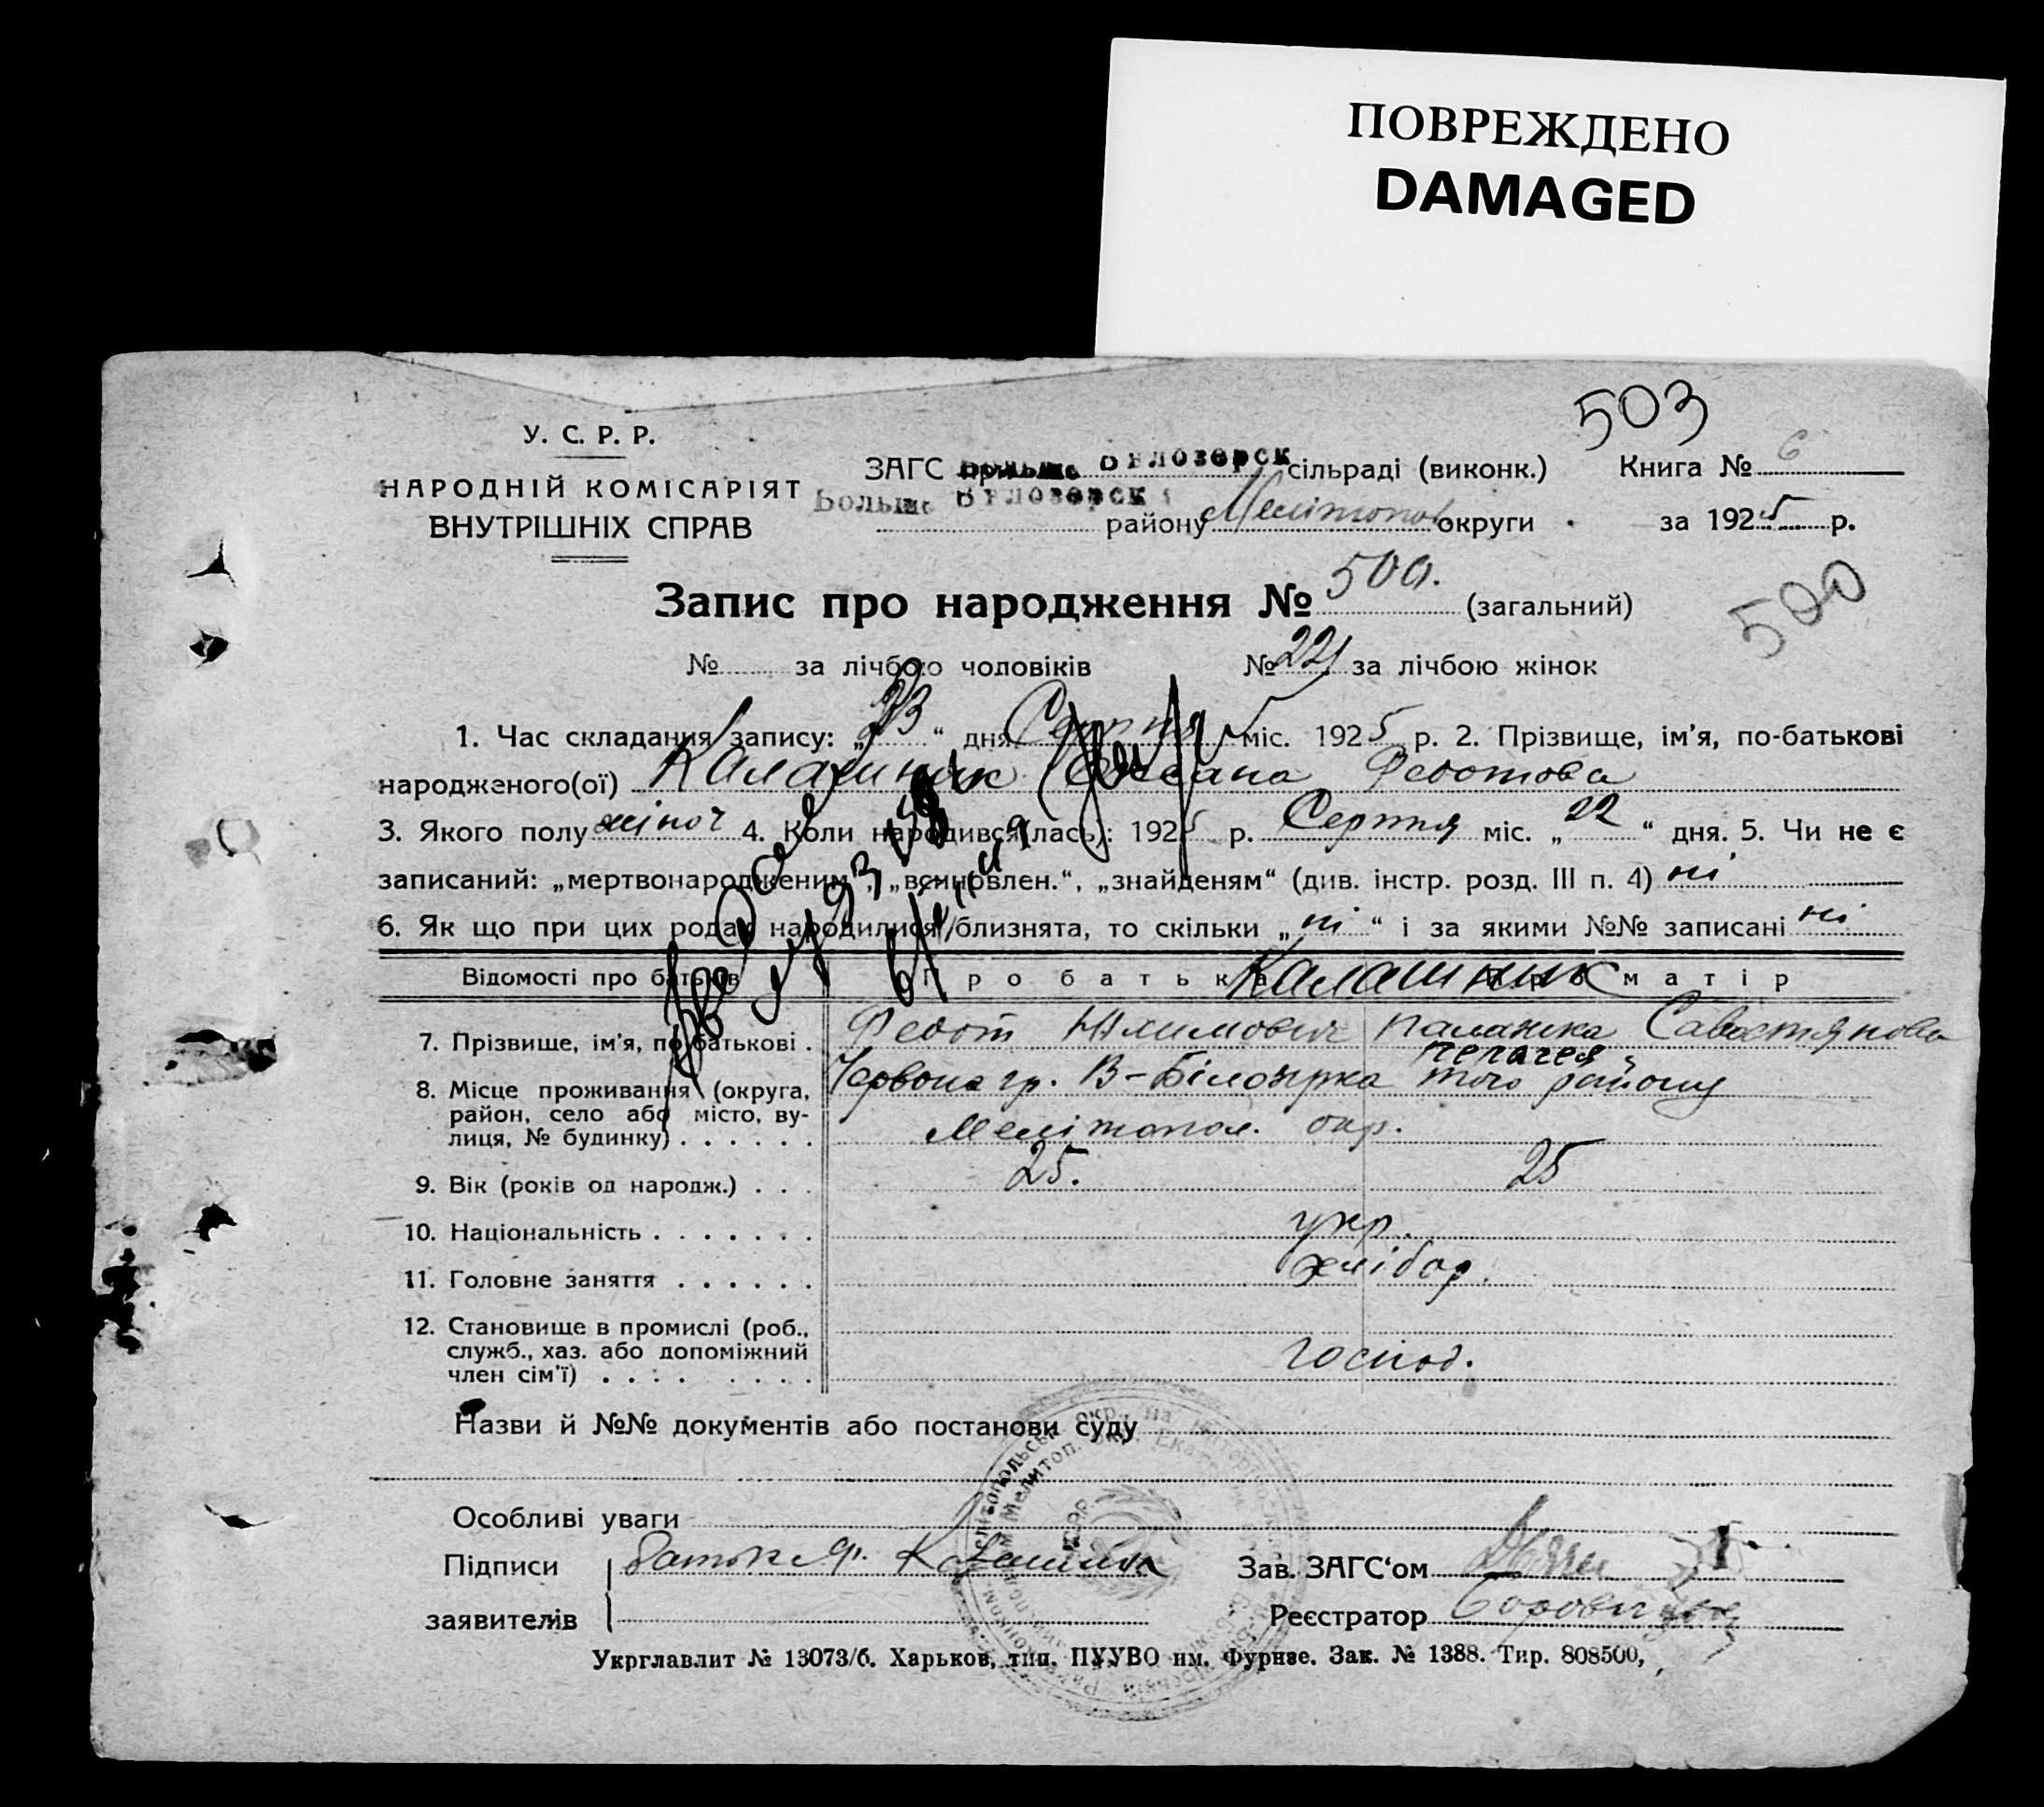 ПОВРЕЖДЕНО
DAMAGED
503
У. С. Р. Р.
НАРОДНІЙ КОМІСАРІЯТ
ВНУТРІШНІХ СПРАВ
ЗАГС при Больше Білозерск сільраді (виконк.) Книга № 6
Больше Білозерск району Мелітопол округи за 1925 р.
Запис про народження № 500. (загальний)
500
№ за лічбою чоловіків № 221 за лічбою жінок
1. Час складання запису: „23“ дня Серпня міс. 1925 р. 2. Прізвище, ім’я, по-батькові
народженого(ої) Калашник Оксана Федотова
3. Якого полу жіноч 4. Коли народився(лась): 1925 р. Серпня міс. „22“ дня. 5. Чи не є
записаний: „мертвонародженим“, „всиновлен.“, „знайденям“ (див. інстр. розд. III п. 4) ні
6. Як що при цих родах народилися близнята, то скільки „ні“ і за якими №№ записані ні
Відомості про батьків Про батька Про матір
Калашник
7. Прізвище, ім’я, по батькові . Федот Юхимович Палажка Савостянова
Пелагея
8. Місце проживання (округа, район, село або місто, вулиця, № будинку) . . . . . . Червона гр. В-Білозірка того району
Мелітопол. окр.
9. Вік (років од народж.) . . . 25. 25
10. Національність . . . . . . . укр.
11. Головне заняття . . . . . . хлібор.
12. Становище в промислі (роб., служб., хаз. або допоміжний член сім’ї) . . . . . . . . господ.
Назви й №№ документів або постанови суду
Особливі уваги
Підписи батьк Ф. Калашник Зав. ЗАГС‘ом
заявителів Реєстратор
Укрглавлит № 13073/б. Харьков, тип. ПУУВО им. Фурнзе. Зак. № 1388. Тир. 808500,